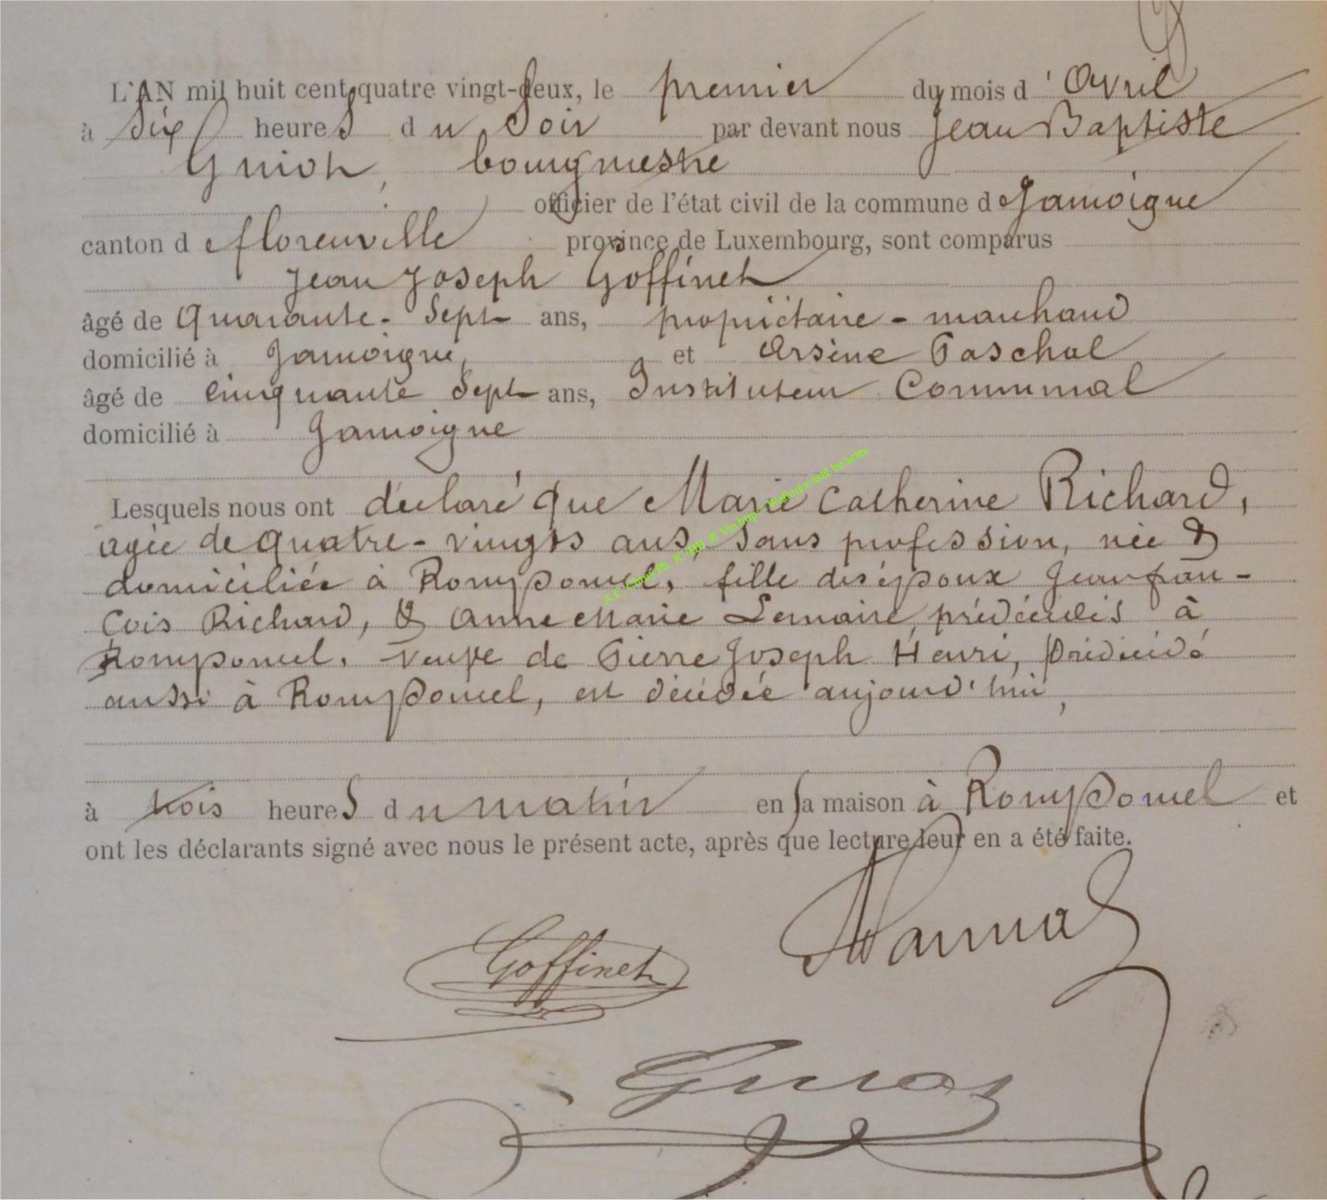 L'AN mil huit cent quatre vingt-deux, le premier du mois d'Avril
à Six heures du Soir par devant nous Jean Baptiste
Guiot, bourgmestre
officier de l'état civil de la commune de Jamoigne
canton de florenville province de Luxembourg, sont comparus
Jean Joseph Goffinet
âgé de Quarante-Sept ans, propriétaire - marchand
domicilié à Jamoigne, et Arsène Paschal
âgé de Cinquante Sept ans, Instituteur Communal
domicilié à Jamoigne
Lesquels nous ont déclaré que Marie Catherine Richard,
agée de quatre-vingts ans, Sans profession, née &
domiciliée à Romponcel, fille des époux Jean fran-
cois Richard, & Anne Marie Lemaire, prédécédés à
Romponcel. veuve de Pierre Joseph Henri, Prédécédé
aussi à Romponcel, est décédée aujourd'hui,
à trois heures du matin en sa maison à Romponcel et
ont les déclarants signé avec nous le présent acte, après que lecture leur en a été faite.
Goffinet
Guiot